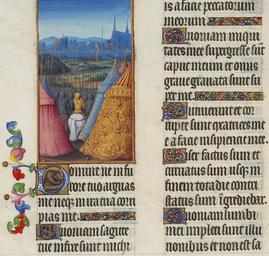 Domine ne in fu
rore tuo arguas
me neq; in ira tua corri
pias me
Quoniam sagitte
tue infixe sunt michi
is a facie peccatorum
meorum
Quoniam iniqui
tates mee supergresse sunt
caput meum et onus
graue grauata sunt su
per me
Putruerunt et cor
rupte sunt cicatrices mee
a facie insipientie mee
Miser factus sum et
curuatus sum usq; in
finem tota die contri
status ingrediebar
Quoniam lumbi
mei impleti sunt illu
sionibus et non est sa